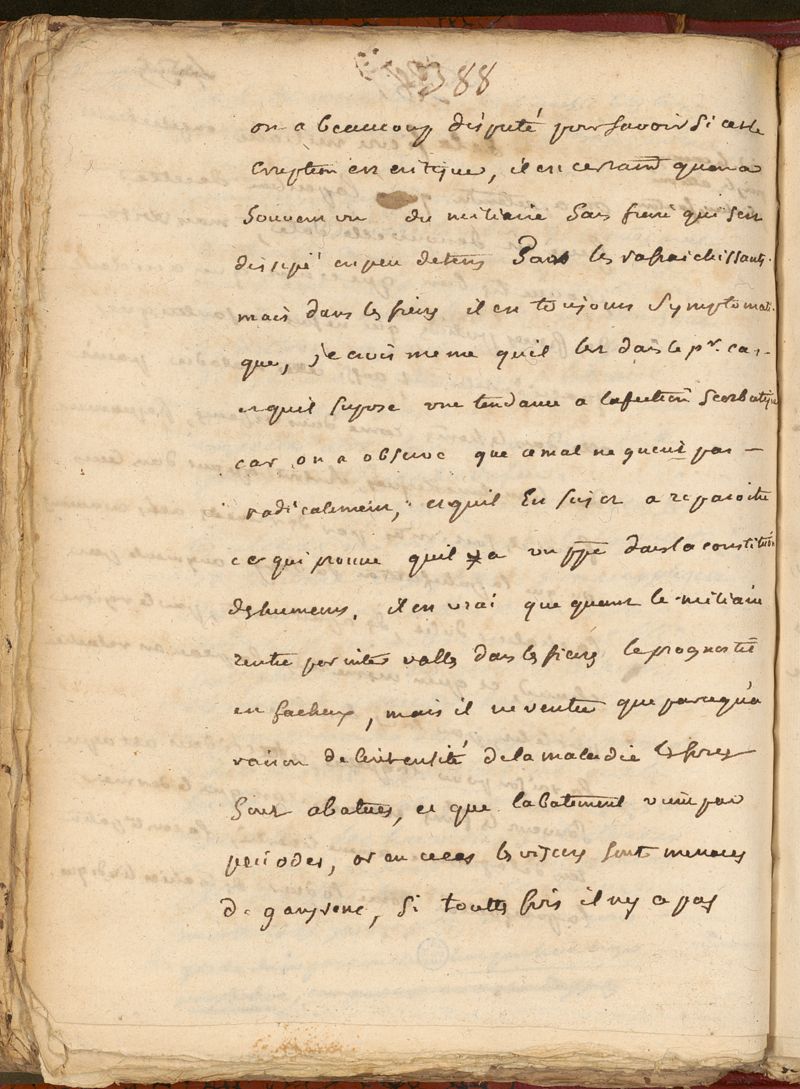 388
on a beaucoup disputé pour savoir si cette
eruption est critique, il est certain quon a
souvent vu du miliaire sans fievre qui sest
dissipé en peu de tems Par les rafraichissants.
mais dans les fievres il est toujours symptomati-
que, je crois meme quil lest dans le pr. cas -
et quil supose une tendance a lafection scorbutique
car on a observé que ce mal ne guerit pas —
radicalement, et quil est sujet a reparoitre
ce qui prouve quil y a un ppe dans la constitution
des humeurs. il est vrai que quant le miliaire
rentre par intervalles dans les fievres le prognostic
est facheux, mais il ne rentre que parcequ'a
raison de lintensité de la maladie les forces
sont abatues, et que labatement vient par
periodes, or en ce cas les visceres sont menacés
de gangrene, si touttes fois il ny a pas